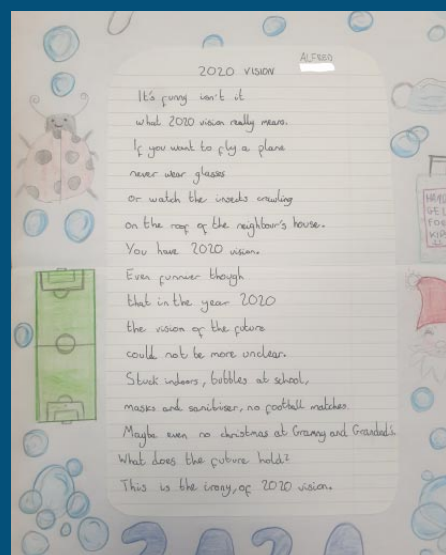 ALFRED
2020 VISION
It's funny isn't it
what 2020 vision really means.
If you want to fly a plane
never wear glasses
or watch the insects crawling
on the roof of the neighbour's house.
You have 2020 vision.
Even funnier though
that in the year 2020
the vision of the future
could not be more unclear.
Stuck indoors, bubbles at school,
masks and sanitiser, no football matches.
Maybe even no christmas at Granny and Grandad's
What does the future hold?
This is the irony, of 2020 vision.
HAND
GEL
FOR
KIDS
2020